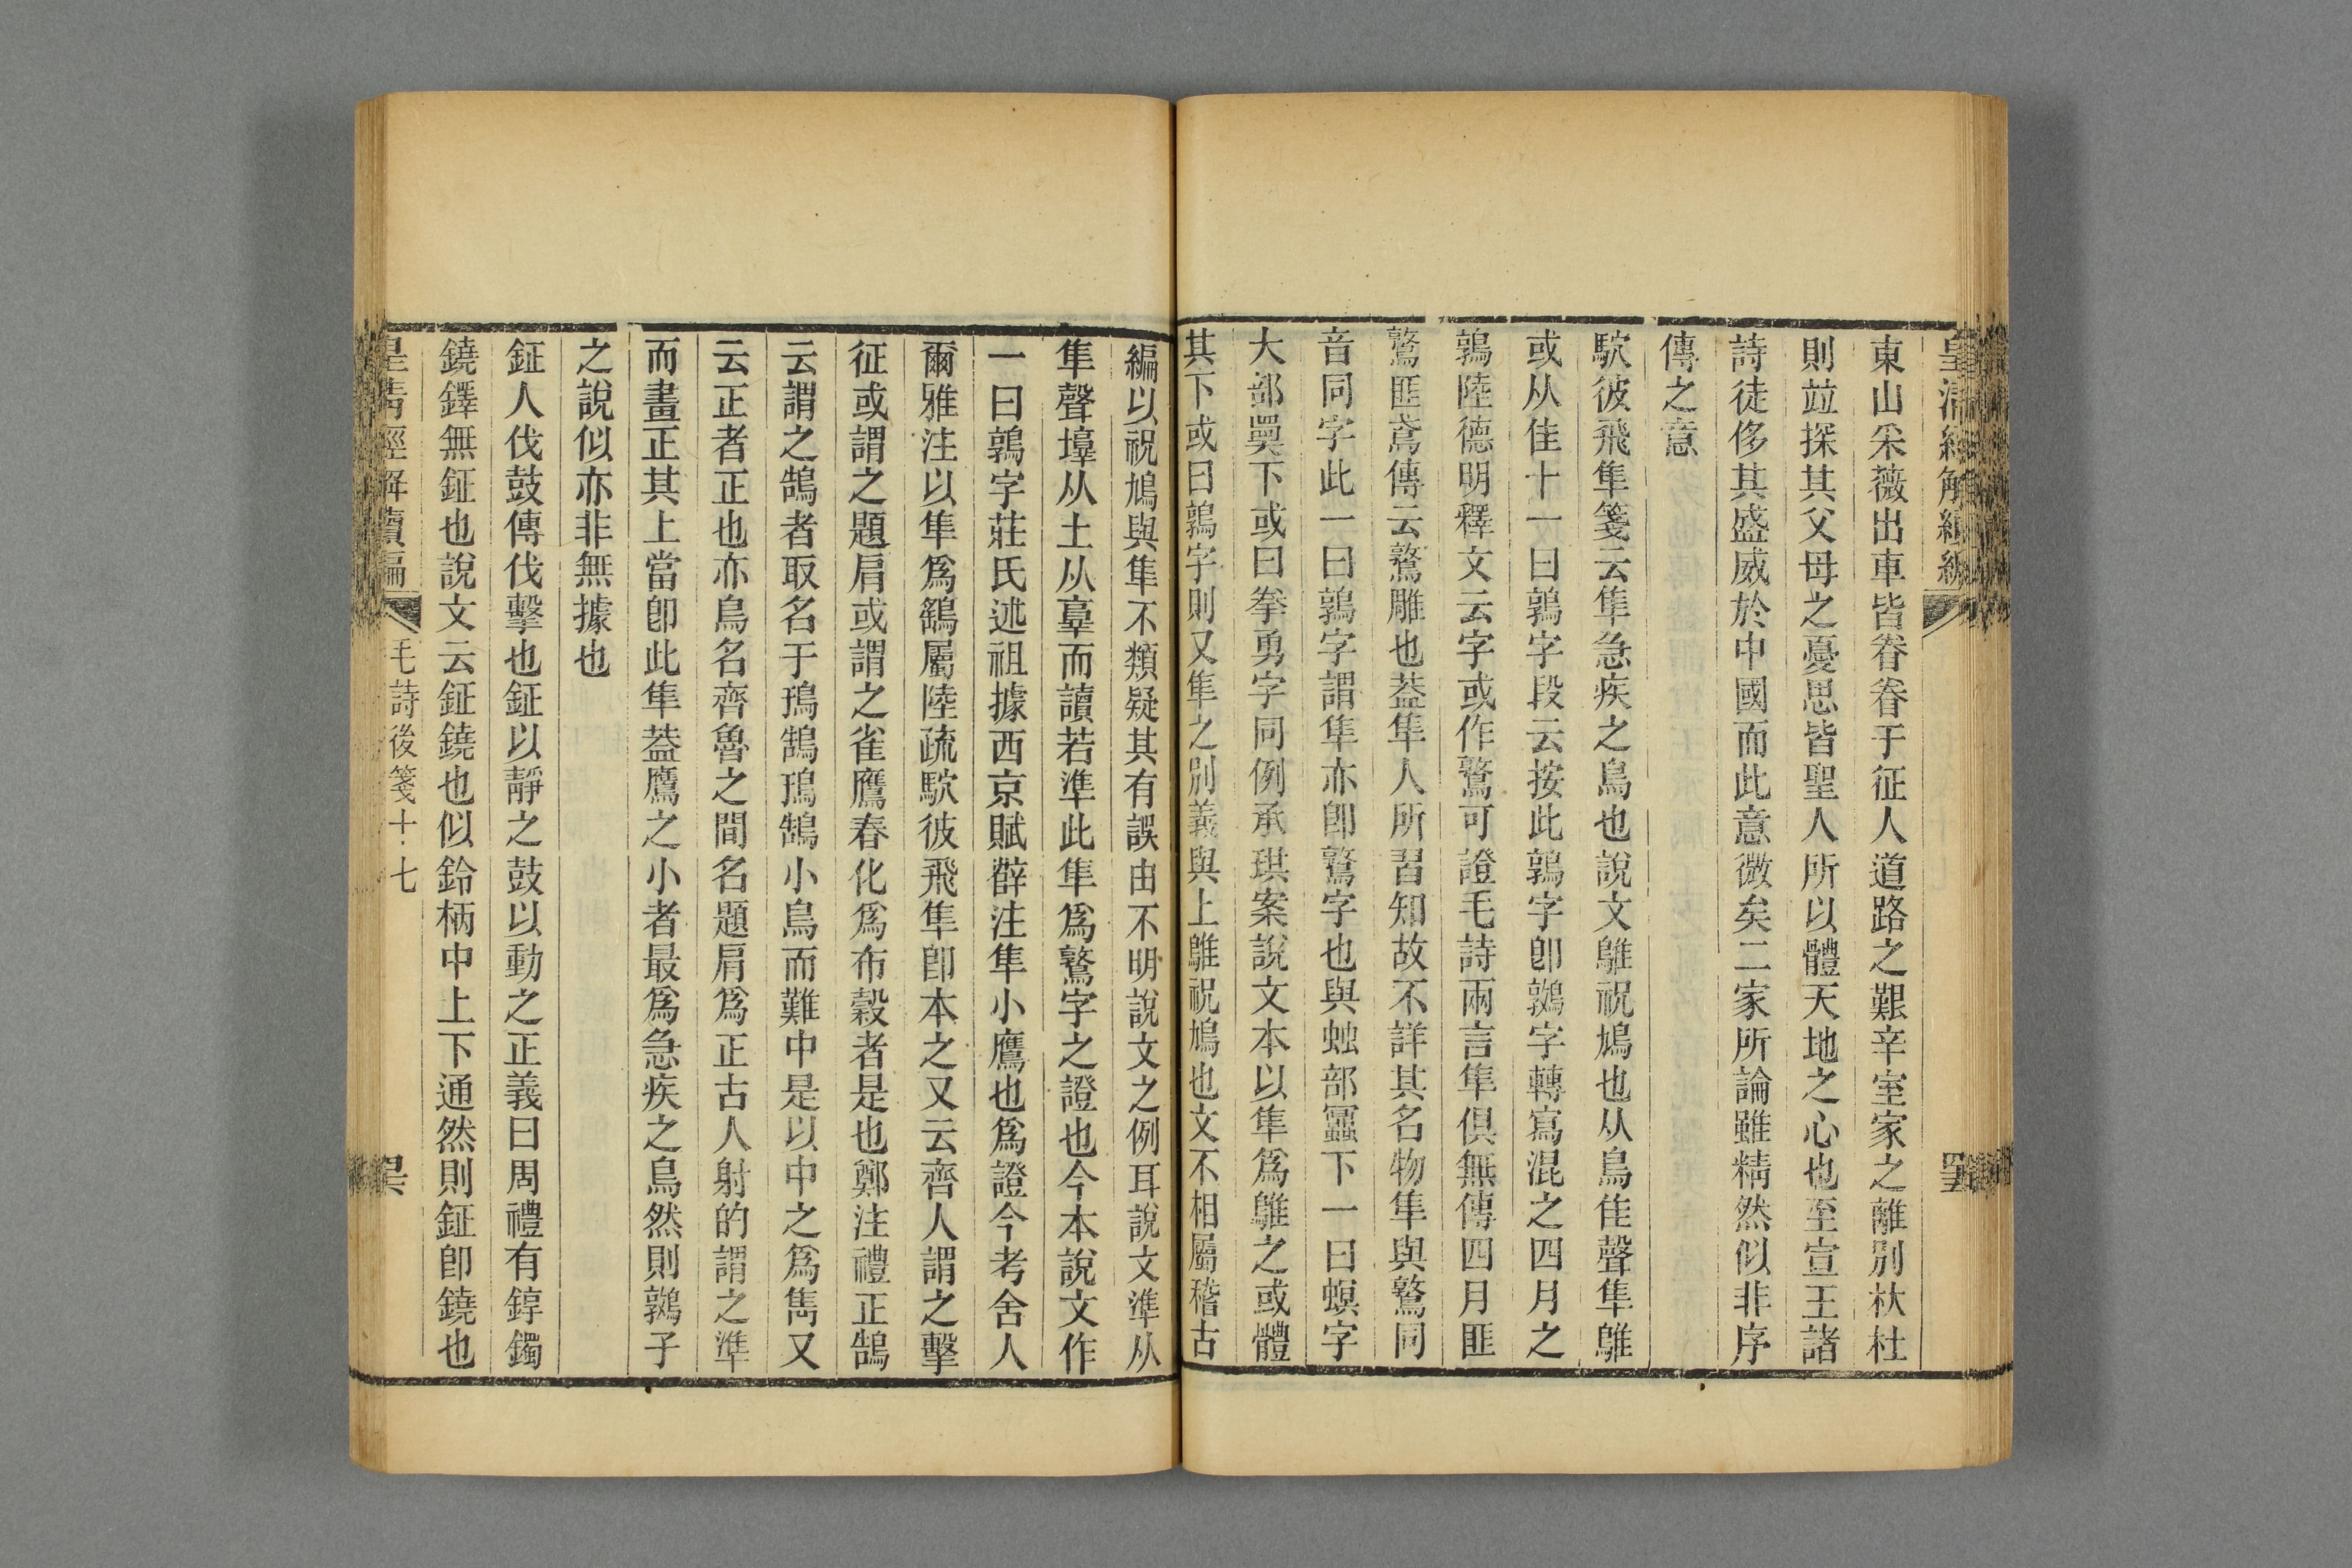 皇清經解續編
東山采薇出車皆眷眷于征人道路之艱辛室家之離別杕杜
則竝探其父母之憂思皆聖人所以體天地之心也至宣王諸
詩徒侈其盛威於中國而此意微矣二家所論雖精然似非序
傳之意
鴥彼飛隼箋云隼急疾之鳥也說文鵻祝鳩也从鳥隹聲隼鵻
或从隹十一曰鶉字段云按此鶉字卽鷻字轉寫混之四月之
鶉陸德明釋文云字或作鷻可證毛詩兩言隼俱無傳四月匪
鷻匪鳶傳云鷻雕也葢隼人所習知故不詳其名物隼與鷻同
音同字此一曰鶉字謂隼亦卽鷻字也與䖵部蠠下一曰螟字
大部㚖下或曰拳勇字同例承珙案說文本以隼爲鵻之或體
其下或曰鶉字則又隼之別義與上鵻祝鳩也文不相屬稽古
編以祝鳩與隼不類疑其有誤由不明說文之例耳說文準从
隼聲𡑞从土从𦎫而讀若準此隼爲鷻字之證也今本說文作
一曰鶉字莊氏述祖據西京賦薛注隼小鷹也爲證今考舍人
爾雅注以隼爲鷂屬陸疏鴥彼飛隼卽本之又云齊人謂之擊
征或謂之題肩或謂之雀鷹春化爲布穀者是也鄭注禮正鵠
云謂之鵠者取名于鳱鵠鳱鵠小鳥而難中是以中之爲雋又
云正者正也亦鳥名齊魯之間名題肩爲正古人射的謂之準
而畫正其上當卽此隼葢鷹之小者最爲急疾之鳥然則鷻子
之說似亦非無據也
鉦人伐鼓傳伐擊也鉦以靜之鼓以動之正義曰周禮有錞鐲
鐃鐸無鉦也說文云鉦鐃也似鈴柄中上下通然則鉦卽鐃也
皇清經解續編 毛詩後箋十七